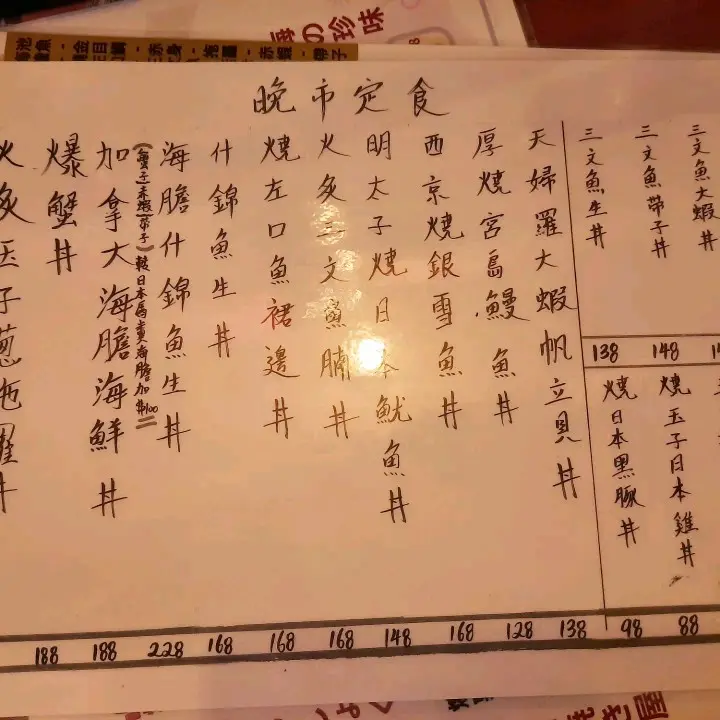 の珍味
晚市定食
三文魚大蝦丼
三文魚帶子丼 148
三文魚生丼 138
燒玉子日本雞丼 88
燒日本黑豚丼 98
天婦羅大蝦帆立貝丼 138
厚燒宮島鰻魚丼 128
西京燒銀雪魚丼 168
明太子燒日本魷魚丼 148
火炙三文魚腩丼 168
燒左口魚裙邊丼 168
什錦魚生丼 168
海膽什錦魚生丼 228
(蟹子/赤蝦/帶子) 轉日本馬糞海膽加$100
加拿大海膽海鮮丼 188
爆蟹丼 188
火炙玉子葱拖羅丼